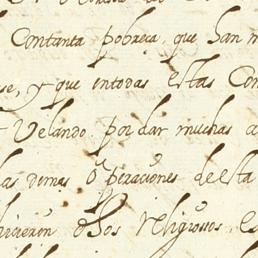 Contanta pobreça, que han
se, y que entodas estas Con
Velando por dar muchas a
las demas operaciones de esta
hicieron dhos religiosos e